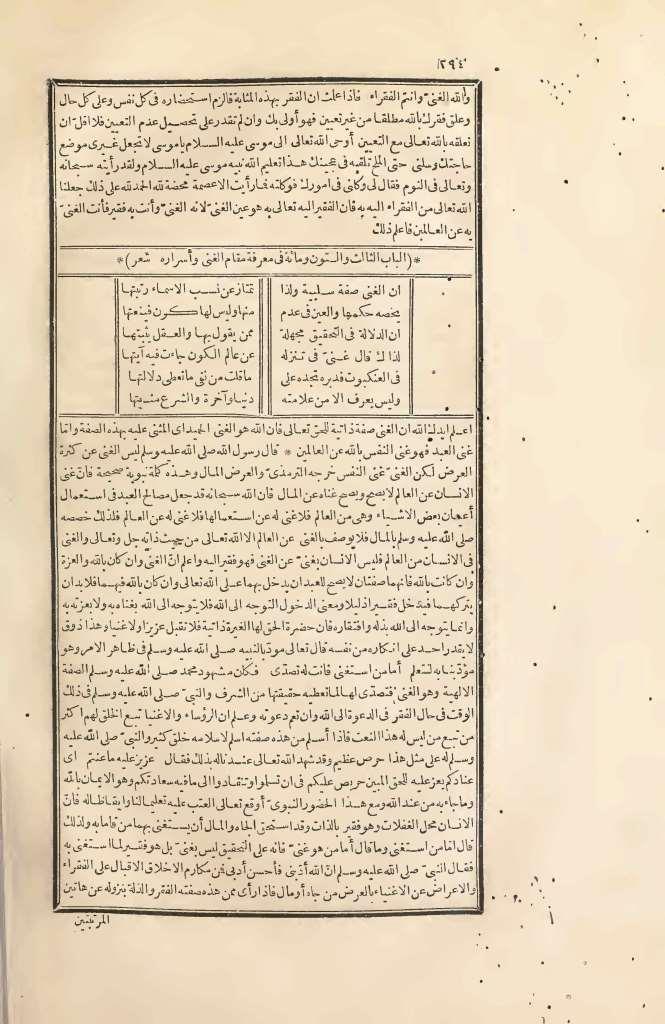 ٢٩٤
والله الغنىّ وأنتم الفقراء فاذا علمت ان الفقر بهذه المثابة فالزم استحضاره فى كل نفس وعلى كل حال
وعلق فقرك بالله مطلقا من غير تعيين فهو أولى بك وان لم تقدر على تحصيل عدم التعيين فلا اقل ان
تعلقه بالله تعالى مع التعيين أوحى الله تعالى الى موسى عليه السلام يا موسى لا تجعل غيرى موضع
حاجتك وسلنى حتى الملح تلقيه فى عجينك هذا تعليم الله نبيه موسى عليه السلام ولقد رأيته سبحانه
وتعالى فى النوم فقال لى وكلنى فى امورك فوكلته فما رأيت الا عصمة محضة لله الحمد لله على ذلك جعلنا
الله تعالى من الفقراء اليه به فان الفقر اليه تعالى به هو عين الغنى لانه الغنىّ وأنت به فقير فأنت الغنىّ
به عن العالمين فاعلم ذلك
*(الباب الثالث والستون ومائة فى معرفة مقام الغنى وأسراره شعر)*
ان الغنى صفة سلبية ولذا تمتاز عن نسب الاسماء رتبتها
يخصه حكمها والعين فى عدم منها وليس لها كون فينعتها
ان الدلالة فى التحقيق مجهلة ممن يقول بها والعقل يثبتها
لذاك قال غنىّ فى تنزله عن عالم الكون جاءت فيه آيتها
فى العنكبوت فدبره تجده على ما قلت من نفى ما تعطى دلالتها
وليس يعرف الا من علامته دنيا وآخرة والشرع مثبتها
اعلم أيدك الله ان الغنى صفة ذاتية للحق تعالى فان الله هو الغنى الحميد اى المثنى عليه بهذه الصفة وأما
غنى العبد فهو غنى النفس بالله عن العالمين * قال رسول الله صلى الله عليه وسلم ليس الغنى عن كثرة
العرض لكن الغنى غنى النفس خرجه الترمذىّ والعرض المال وهذه كلمة نبوية صحيحة فان غنى
الانسان عن العالم لا يصح ويصح غناه عن المال فان الله سبحانه قد جعل مصالح العبد فى استعمال
أعيان بعض الاشياء وهى من العالم فلا غنى له عن استعمالها فلا غنى له عن العالم فلذلك خصصه
صلى الله عليه وسلم بالمال فلا يوصف بالغنى عن العالم الا الله تعالى من حيث ذاته جل وتعالى والغنى
فى الانسان من العالم فليس الانسان بغنىّ عن الغنى فهو فقير اليه واعلم ان الغنى وان كان بالله والعزة
وان كانت بالله فانهما صفتان لا يصح للعبد ان يدخل بهما على الله تعالى وان كان بالله فيهما فلا بد ان
يتركهما فيدخل فقيرا ذليلا ومعنى الدخول التوجه الى الله فلا يتوجه الى الله بغناه به ولا بعزته به
وانما يتوجه الى الله بذله وافتقاره فان حضرة الحق لها الغيرة ذاتية فلا تقبل عزيزا ولا غنيا وهذا ذوق
لا يقدر احد على انكاره من نفسه قال تعالى مؤدّبا لنبيه صلى الله عليه وسلم فى ظاهر الامر وهو
مؤدّبنا به لنتعلم أما من استغنى فانت له تصدّى فكان مشهود محمد صلى الله عليه وسلم الصفة
الالهية وهو الغنى فتصدّى لها لما تعطيه حقيقتها من الشرف والنبى صلى الله عليه وسلم فى ذلك
الوقت فى حال الفقر فى الدعوة الى الله وان تعم دعوته وعلم ان الرؤساء والاغنياء تبع الخلق لهم اكثر
من تبع من ليس له هذا النعت فاذا أسلم من هذه صفته اسلم لاسلامه خلق كثير والنبىّ صلى الله عليه
وسلم له على مثل هذا حرص عظيم وقد شهد الله تعالى عندنا له بذلك فقال عزيز عليه ما عنتم اى
عنادكم يعز عليه للحق المبين حريص عليكم فى ان تسلموا وتنقادوا الى ما فيه سعادتكم وهو الايمان بالله
وما جاء به من عند الله ومع هذا الحضور النبوىّ أوقع تعالى العتب عليه تعليما لنا وايقاظا له فانّ
الانسان محل الغفلات وهو فقير بالذات وقد استحق الجاه والمال أن يستغنى بهما من قاما به ولذلك
قال اما من استغنى وما قال أما من هو غنىّ فانه على التحقيق ليس بغنى بل هو فقير لما استغنى به
فقال النبىّ صلى الله عليه وسلم ان الله أدّبنى فأحسن أدبى فمن مكارم الاخلاق الاقبال على الفقراء
والاعراض عن الاغنياء بالعرض من جاه أو مال فاذا رأى ممن هذه صفته الفقر والذلة بنزوله عن هاتين
المرتبتين